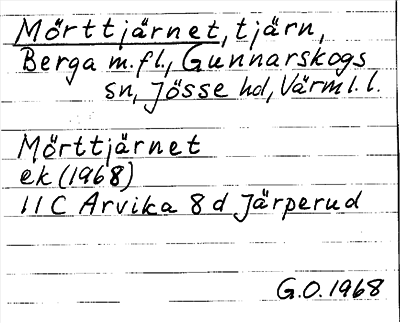 Mörttjärnet, tjärn,
Berga m.fl., Gunnarskogs
sn, Jösse hd, Värml.l.
Mörttjärnet
ek (1968)
11C Arvika 8 d Järperud
G.O. 1968